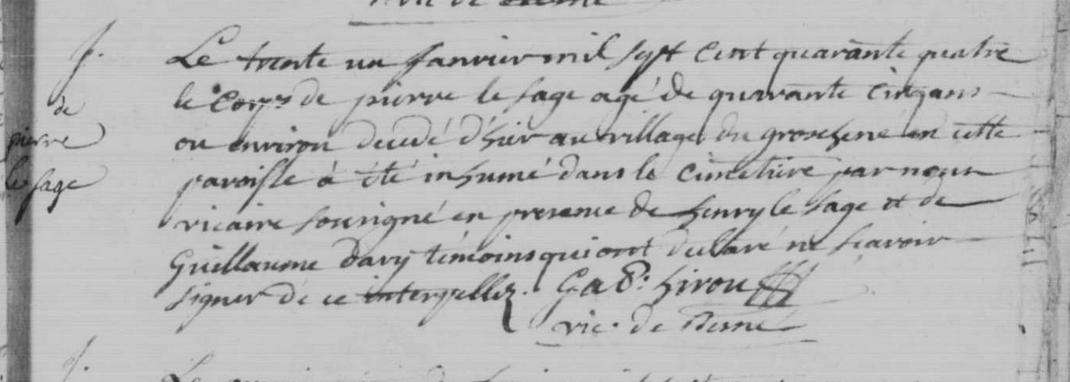 vic. de Besné
f.
de
pierre
le sage
Le trente un Janvier mil sept cent quarante quatre
le corps de pierre le sage agé de quarante cinq ans
ou environ decedé d'hier au village du groschené en cette
paroisse à été inhumé dans le cimetiere par nous
vicaire sousigné en presence de henry le sage et de
Guillaume davy témoins qui ont declaré ne sçavoir
signer de ce interpellez. Gab: hirou
vic. de Besné
f.
Le